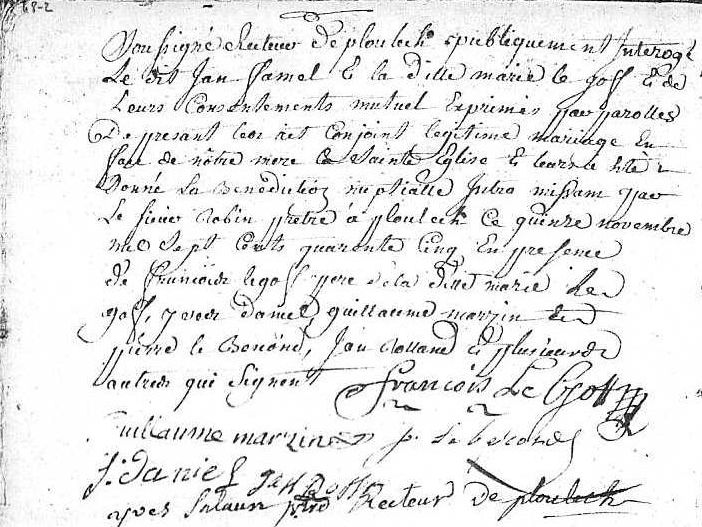 68-2
Soussigné Recteur de ploulech publiquement Interogé
Le dit Jan hamel E la ditte marie le goff Et de
Leurs Consentements mutuel Exprimés par parolles
De presant les ait Conjoint legitime mariage En
face de nôtre mere la Sainte Eglise E leurs a
Donné La Benediction nuptialle Intra missam par
Le sieur Robin prêtre a ploulech Ce quinze novembre
mil Sept Cents quarente Cinq En presence
de francois le goff pere de la ditte marie le
goff, daniel, guillaume marzin
pierre le Bescond, Jan Rolland & plusieurs
autres qui Signent François Le Goff
Guillaume marzin p. le bescond
J: daniel
yves Salaun Recteur de ploulech